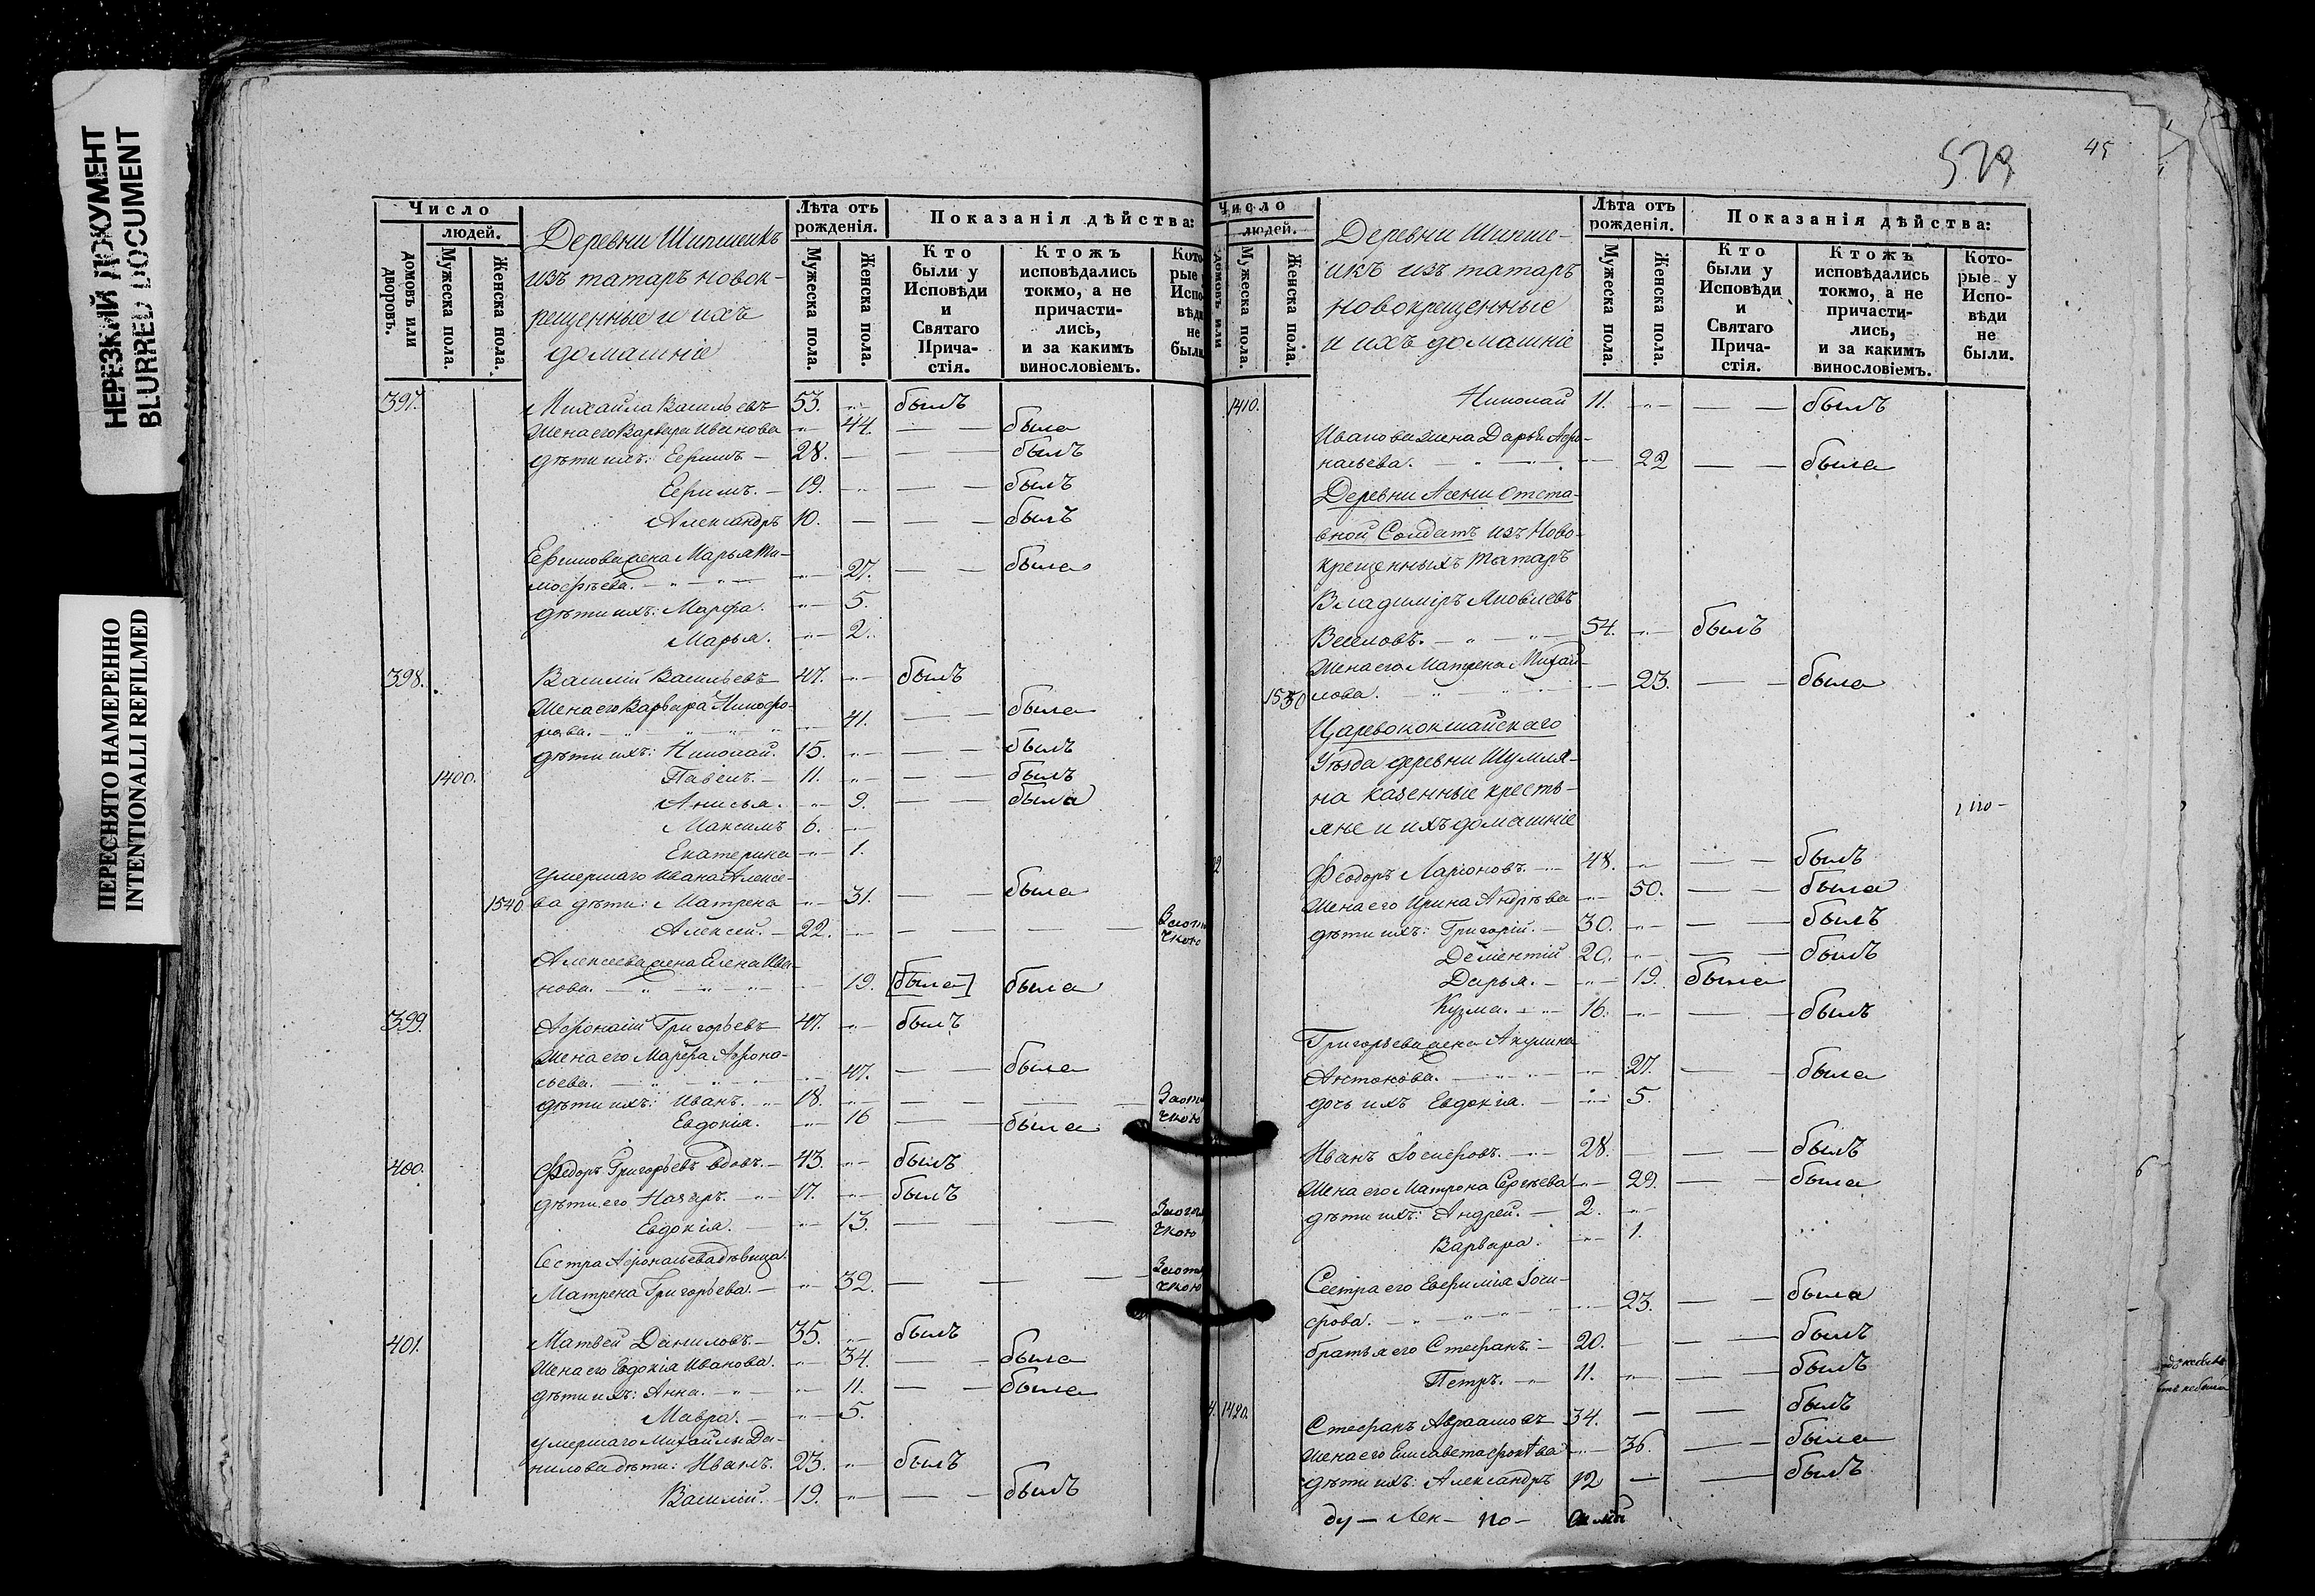 НЕРЕЗКИЙ ДОКУМЕНТ
BLURRED DOCUMENT
ПЕРЕСНЯТО НАМЕРЕННО
INTENTIONALLI REFILMED
Число
людей.
домовъ или дворовъ.
Мужеска пола.
Женска пола.
Деревни Шипшеикъ
изъ татаръ новок-
рещенные и ихъ
домашніе
Лѣта отъ рожденія.
Мужеска пола.
Женска пола.
Показанія дѣйства:
Кто были у Исповѣди и Святаго Прича-стія.
Ктожъ исповѣдались токмо, а не причасти-лись, и за какимъ винословіемъ.
397. Михайла Васильевъ 53. былъ
Жена его Варвара Иванова 44. была
дѣти ихъ: Ефимъ 28. былъ
Ефимъ. 19. былъ
Александръ 10. былъ
Ефимова жена Марья Ти-
мофѣева. 27. была
дѣти ихъ: Марфа. 5.
Марья. 2.
398. Василій Васильевъ 47. былъ
Жена его Варвара
41. была
дѣти ихъ: Николай. 15. былъ
1400. Павелъ. 11. былъ
Анисья. 9. была
Максимъ 6.
Екатерина 1.
умершаго Ивана Алексе-
1540 ва дѣти: Матрена 31. была
Алексей. 22.
Алексеева жена Елена Ива-
нова. 19. [была] была
399. Афонасій Григорьевъ 47. былъ
Жена его Марфа Афона-
сьева. 47. была
дѣти ихъ: Иванъ. 18.
Евдокія. 16 была
400. Федоръ Григорьевъ вдовъ. 43. былъ
дѣти его Назаръ. 17. былъ
Евдокія. 13.
Сестра Афонасьева дѣвица
Матрена Григорьева. 32.
401. Матвей Даниловъ. 35. былъ
Жена его Евдокія Иванова. 34. была
дѣти ихъ: Анна. 11. была
Мавра. 5.
умершаго Михайлы Да-
нилова дѣти: Иванъ. 23. былъ
Василій. 19. былъ
529
45
Число
людей.
домовъ или
Мужеска пола.
Женска пола.
Деревни Шипше-
икъ изъ татаръ
новокрещенные
и ихъ домашніе
Лѣта отъ рожденія.
Мужеска пола.
Женска пола.
Показанія дѣйства:
Кто были у Исповѣди и Святаго Прича-стія.
Ктожъ исповѣдались токмо, а не причасти-лись, и за какимъ винословіемъ.
Кото-рые у Испо-вѣди не были.
1410. Николай 11. былъ
Иванова жена Дарья Афо-
насьева. 22 была
Деревни Асени Отста-
вной Солдатъ изъ Ново-
крещенныхъ татаръ
Владимiръ Яковлевъ
Веселовъ. 54. былъ
Жена его Матрена Михай-
1550 лова. 23. была
Царевококшайскаго
Уѣзда деревни Шумля-
на казенные кресть-
яне и ихъ домашніе
Феодоръ Ларіоновъ. 48. былъ
Жена его Ирина Андрѣева 50. была
дѣти ихъ: Григорій. 30. былъ
Дементій 20. былъ
Дарья. 19. была
Кузма. 16. былъ
Григорьева жена Акулина
Антонова. 27. была
дочь ихъ Евдокія. 5.
Иванъ Іосифовъ. 28. былъ
Жена его Матрона Сергѣева 29. была
дѣти ихъ: Андрей. 2.
Варвара. 1.
Сестра его Евфимія Іоси-
фова. 23. была
братья его Стефанъ. 20. былъ
Петръ. 11. былъ
1420. Стефанъ Авраамовъ 34. былъ
Жена его Елисавета 36. была
дѣти ихъ: Александръ 12 былъ